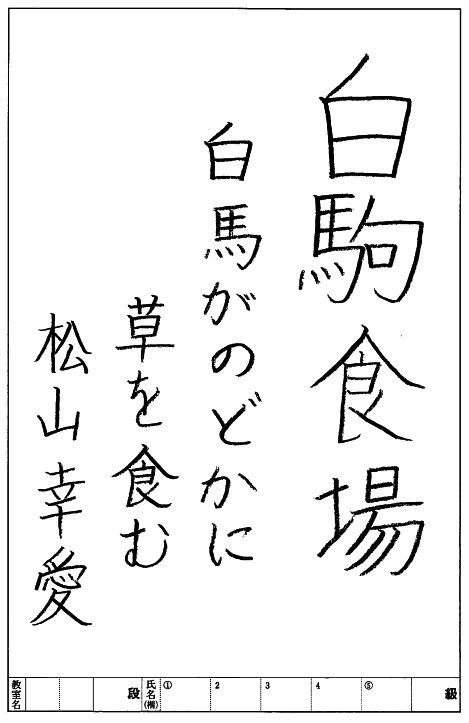 白駒食場
白馬がのどかに
草を食む
松山幸愛
級
⑤
4
3
2
①
氏名(横)
段
教室名